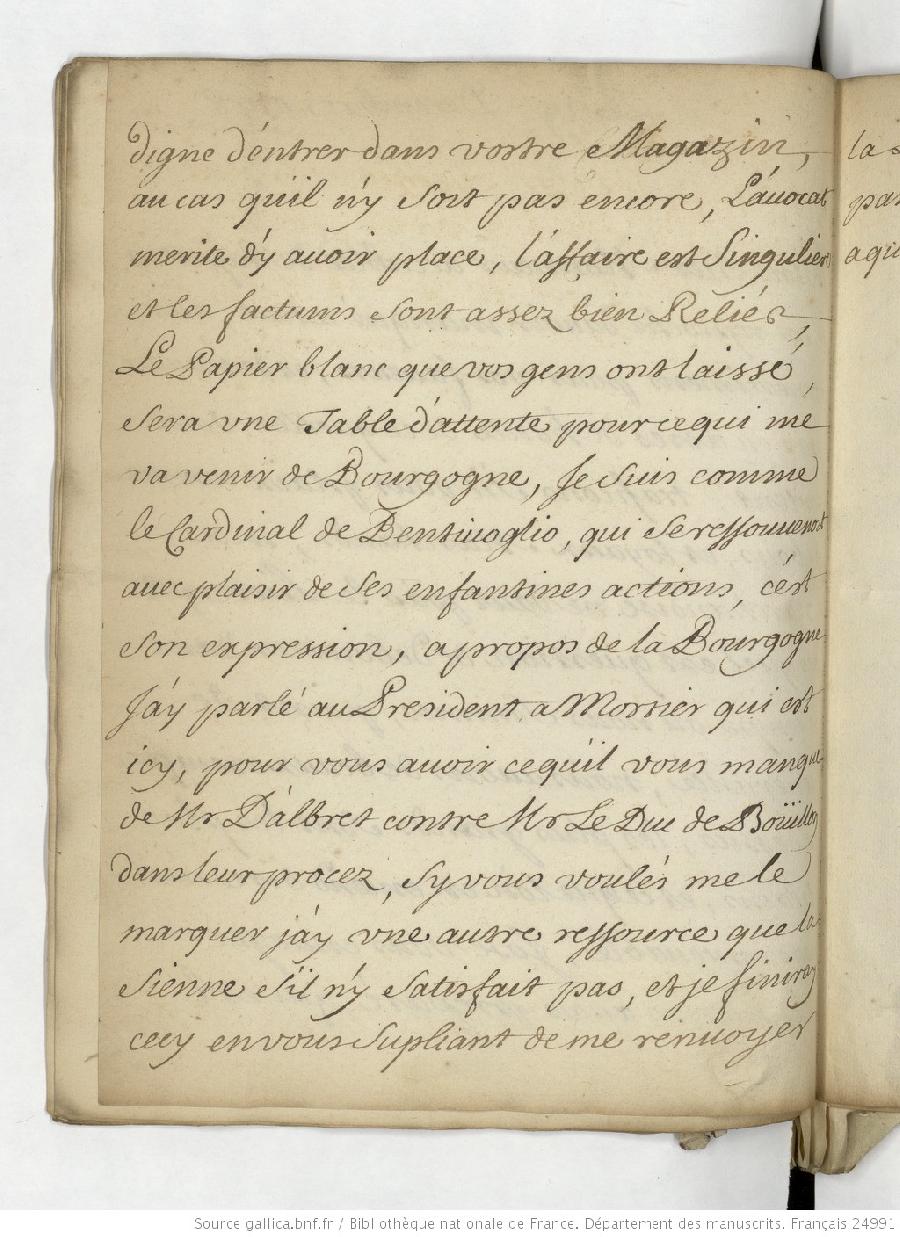 digne d'éntrer dans vostre Magazin,
au cas qu'il n'y soit pas encore, L'auocat
merite d'y auoir place, l'affaire est Singuliere
et les factums sont assez bien Reliés,
Le Papier blanc que vos gens ont laissé,
sera vne Table d'attente pour ce qui me
va venir de Bourgogne, Je suis comme
le Cardinal de Bentiuoglio, qui se ressouuenoit
auec plaisir de ses enfantines actions, c'ést
son expression, a propos de la Bourgogne
J'áy parlé au President a Mortier qui est
icy, pour vous auoir ce qu'il vous manque
de Mr D'albret contre Mr Le Duc de Boüillon
dans leur procez, sy vous voulés me le
marquer j'áy vne autre ressource que la
sienne s'il n'y satisfait pas, et je finiray
cecy en vous supliant de me renuoyer
la
pas
agi
Source gallica.bnf.fr / Bibliothèque nationale de France. Département des manuscrits. Français 24991